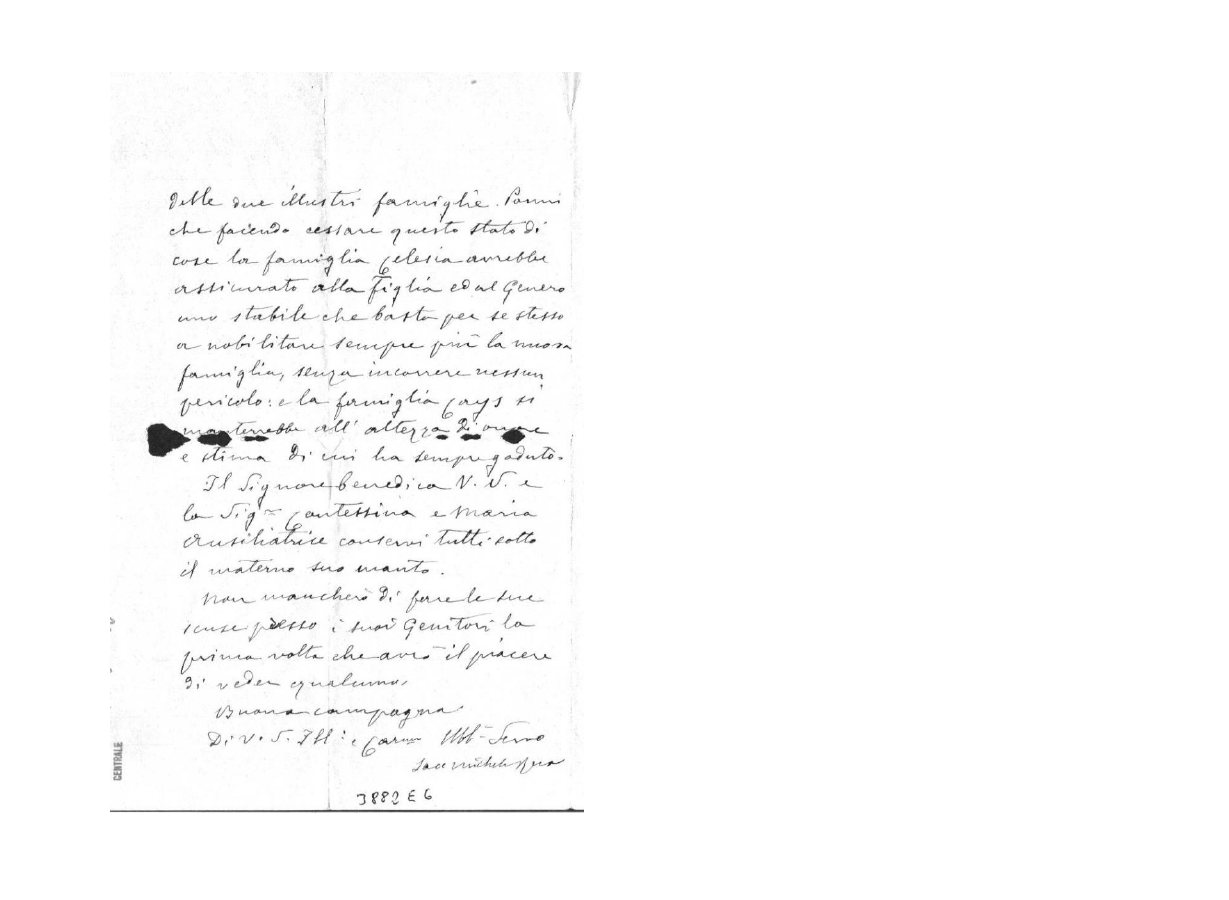 delle due illustri famiglie. Parmi
che facendo cessare questo stato di
cose la famiglia Celesia avrebbe
assicurato alla figlia ed al Genero
uno stabile che basta per se stesso
a nobilitare sempre più la nuova
famiglia, senza incorrere nessun
pericolo: e la famiglia Cays si
manterrebbe all' altezza di onore
e stima di cui ha sempre goduto.
Il Signore benedica V. S. e
la Sig.ra Contessina e Maria
Ausiliatrice conservi tutti sotto
il materno suo manto.
Non mancherò di fare le sue
scuse presso i suoi Genitori la
prima volta che avrò il piacere
di veder qualcuno.
Buona campagna
Di V. S. Ill: e Car.ma Obbl. Servo
Sac Michele Rua
3882 E 6
CENTRALE